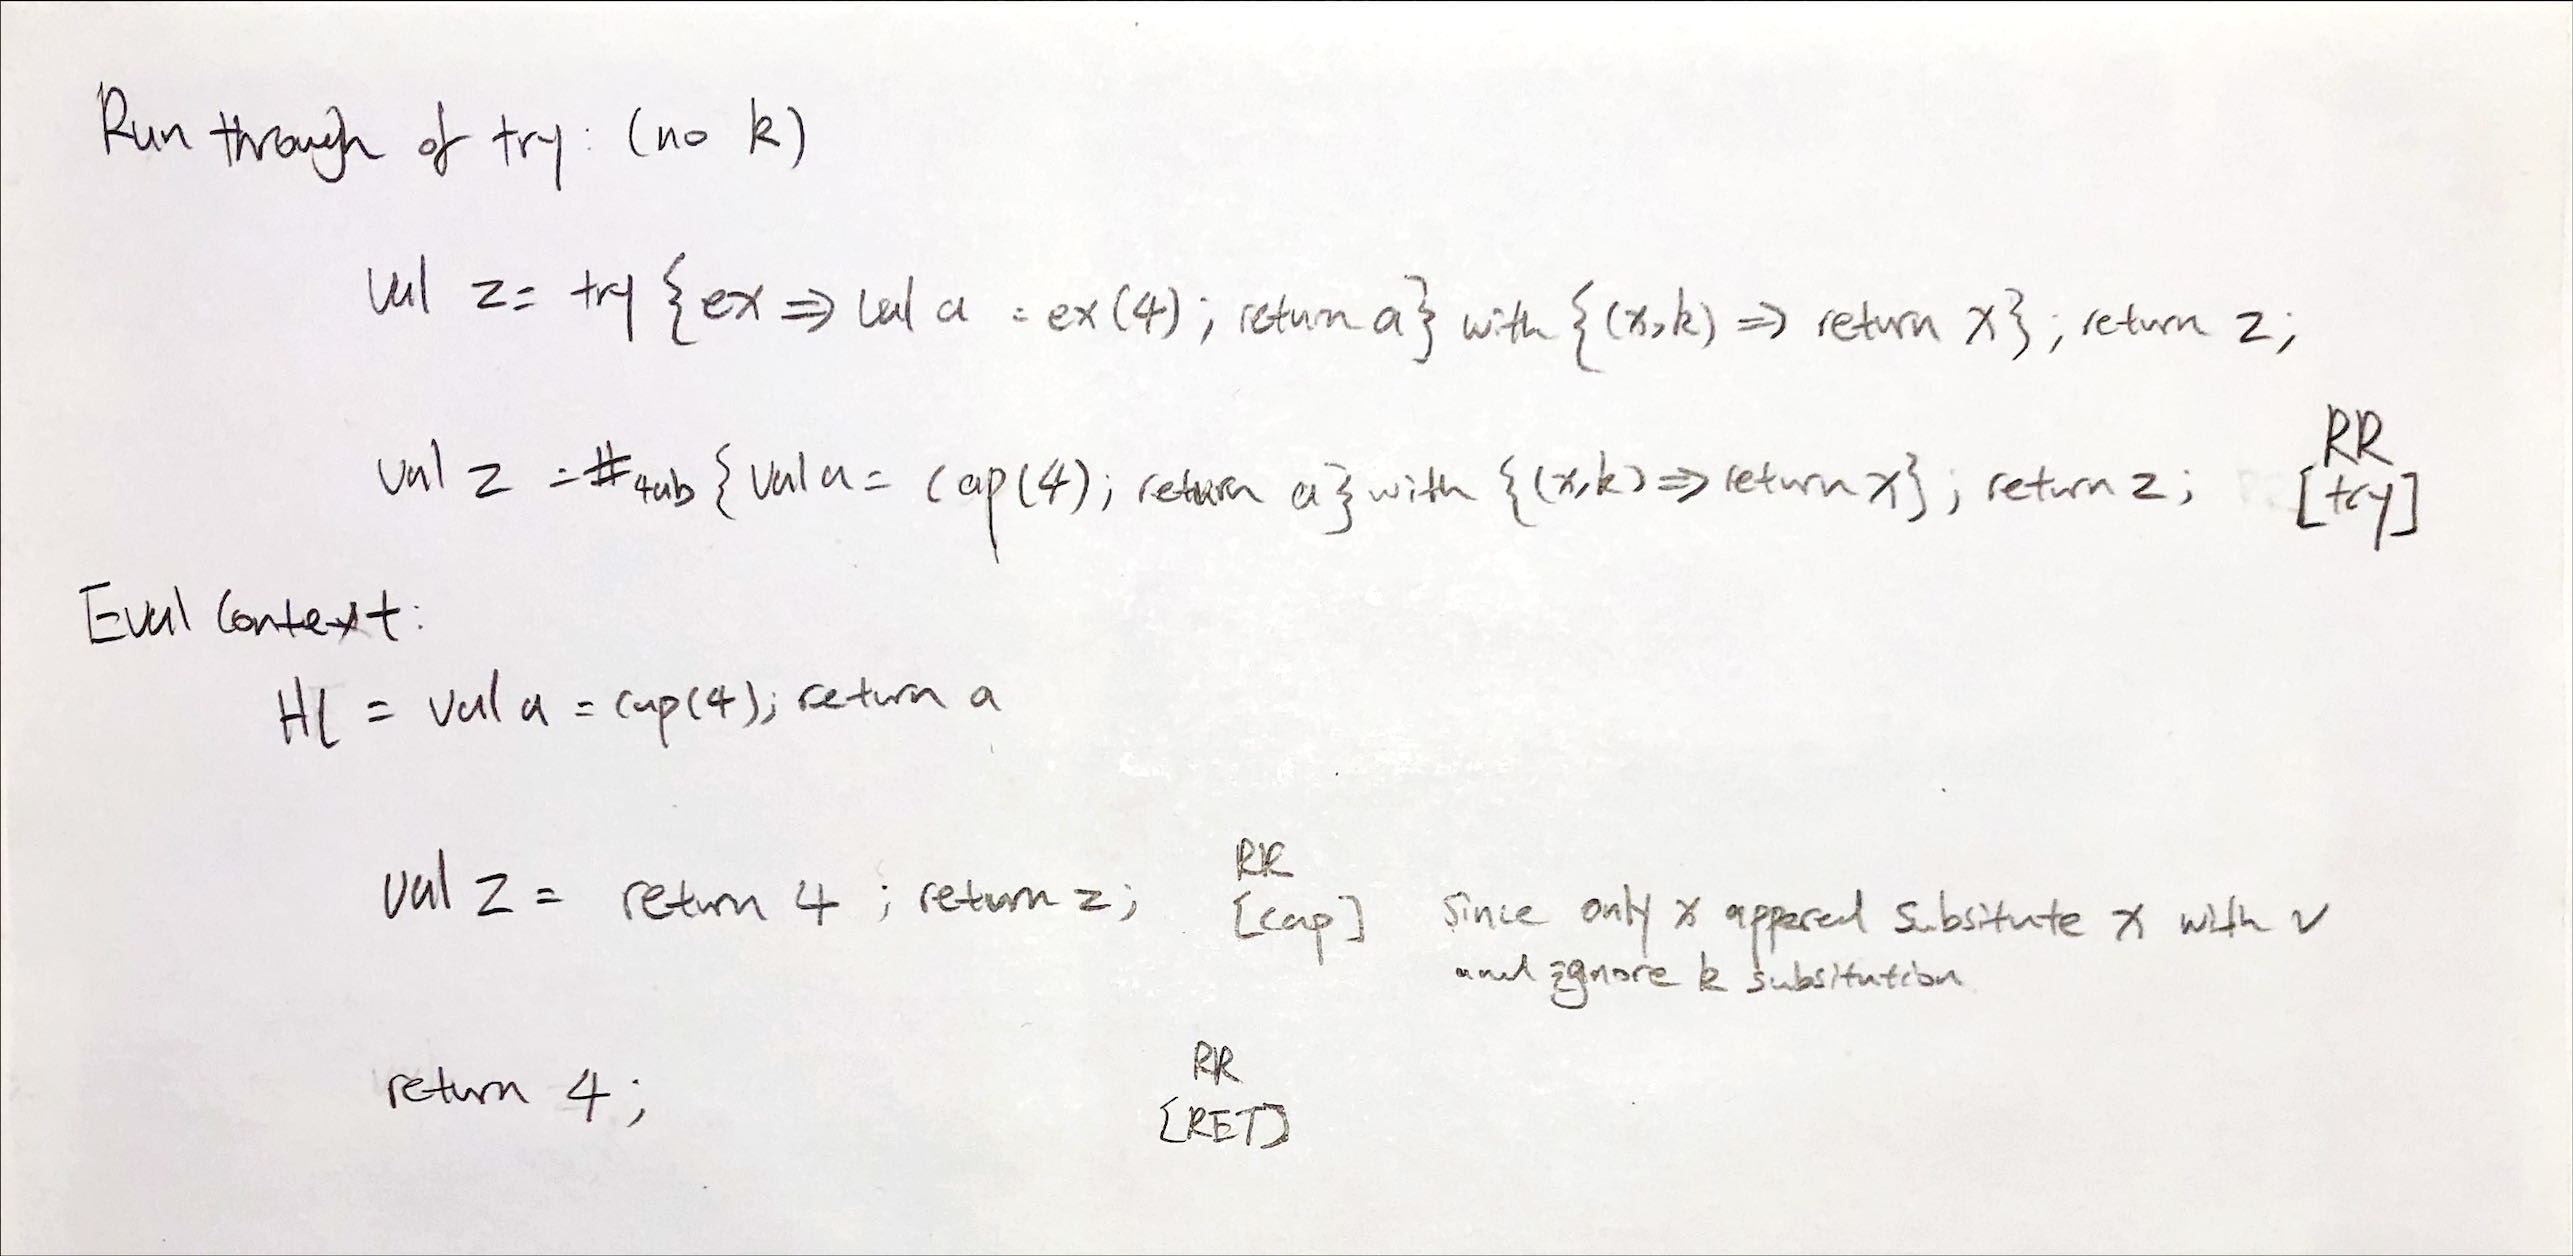 Run through of try: (no k)
val z = try {ex ⇒ val a = ex(4); return a} with {(x,k) ⇒ return x}; return z;
val z = #4ab {val a = cap(4); return a} with {(x,k) ⇒ return x}; return z; RR [try]
Eval Context:
Hl = val a = cap(4); return a
val z = return 4 ; return z; RR [cap] since only x appered subsitute x with v
and ignore k subsitution
return 4; RR [RET]